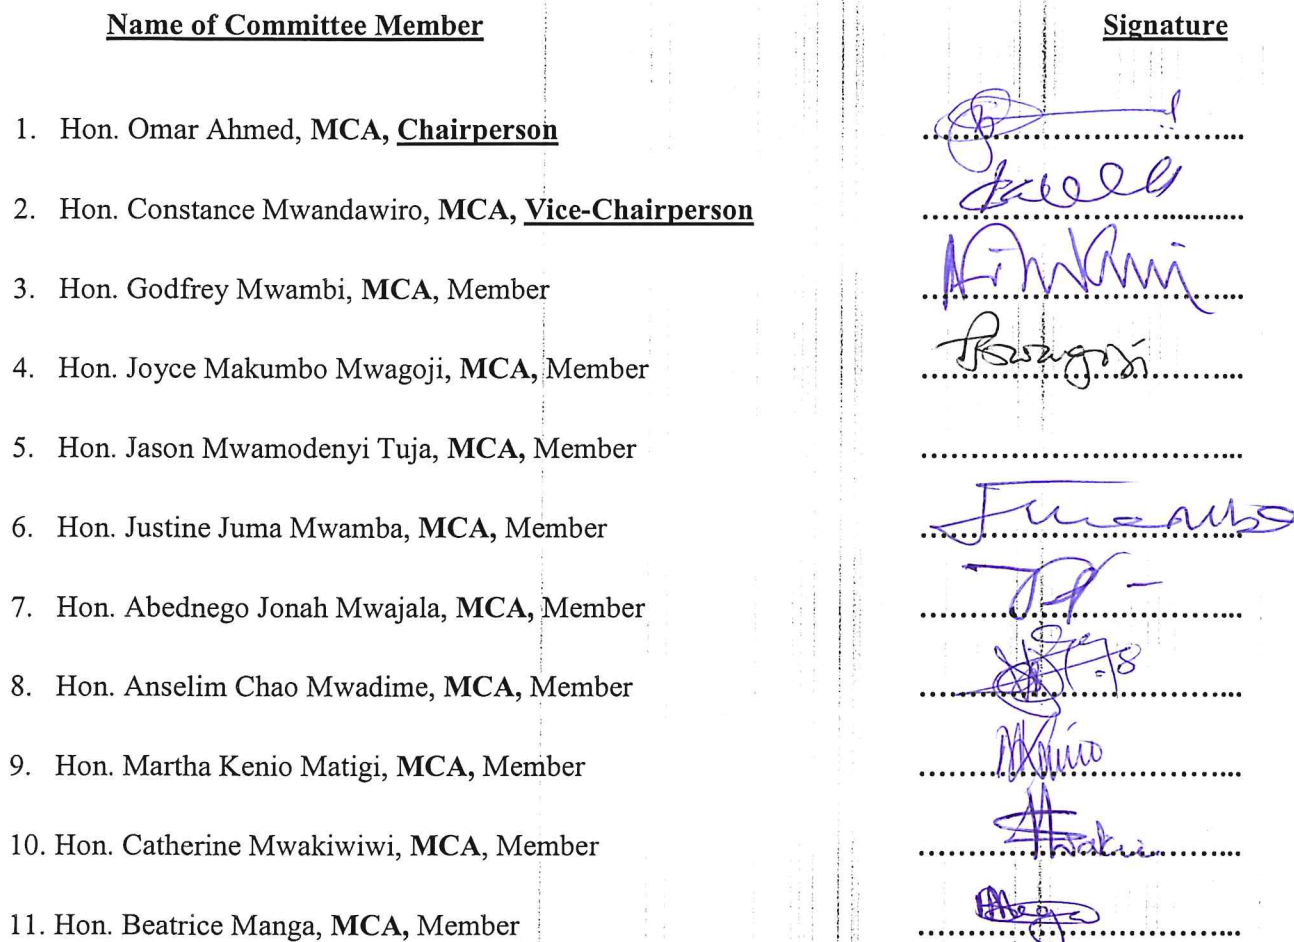 Name of Committee Member Signature
1. Hon. Omar Ahmed, MCA, Chairperson
2. Hon. Constance Mwandawiro, MCA, Vice-Chairperson
3. Hon. Godfrey Mwambi, MCA, Member
4. Hon. Joyce Makumbo Mwagoji, MCA, Member
5. Hon. Jason Mwamodenyi Tuja, MCA, Member
6. Hon. Justine Juma Mwamba, MCA, Member
7. Hon. Abednego Jonah Mwajala, MCA, Member
8. Hon. Anselim Chao Mwadime, MCA, Member
9. Hon. Martha Kenio Matigi, MCA, Member
10. Hon. Catherine Mwakiwiwi, MCA, Member
11. Hon. Beatrice Manga, MCA, Member